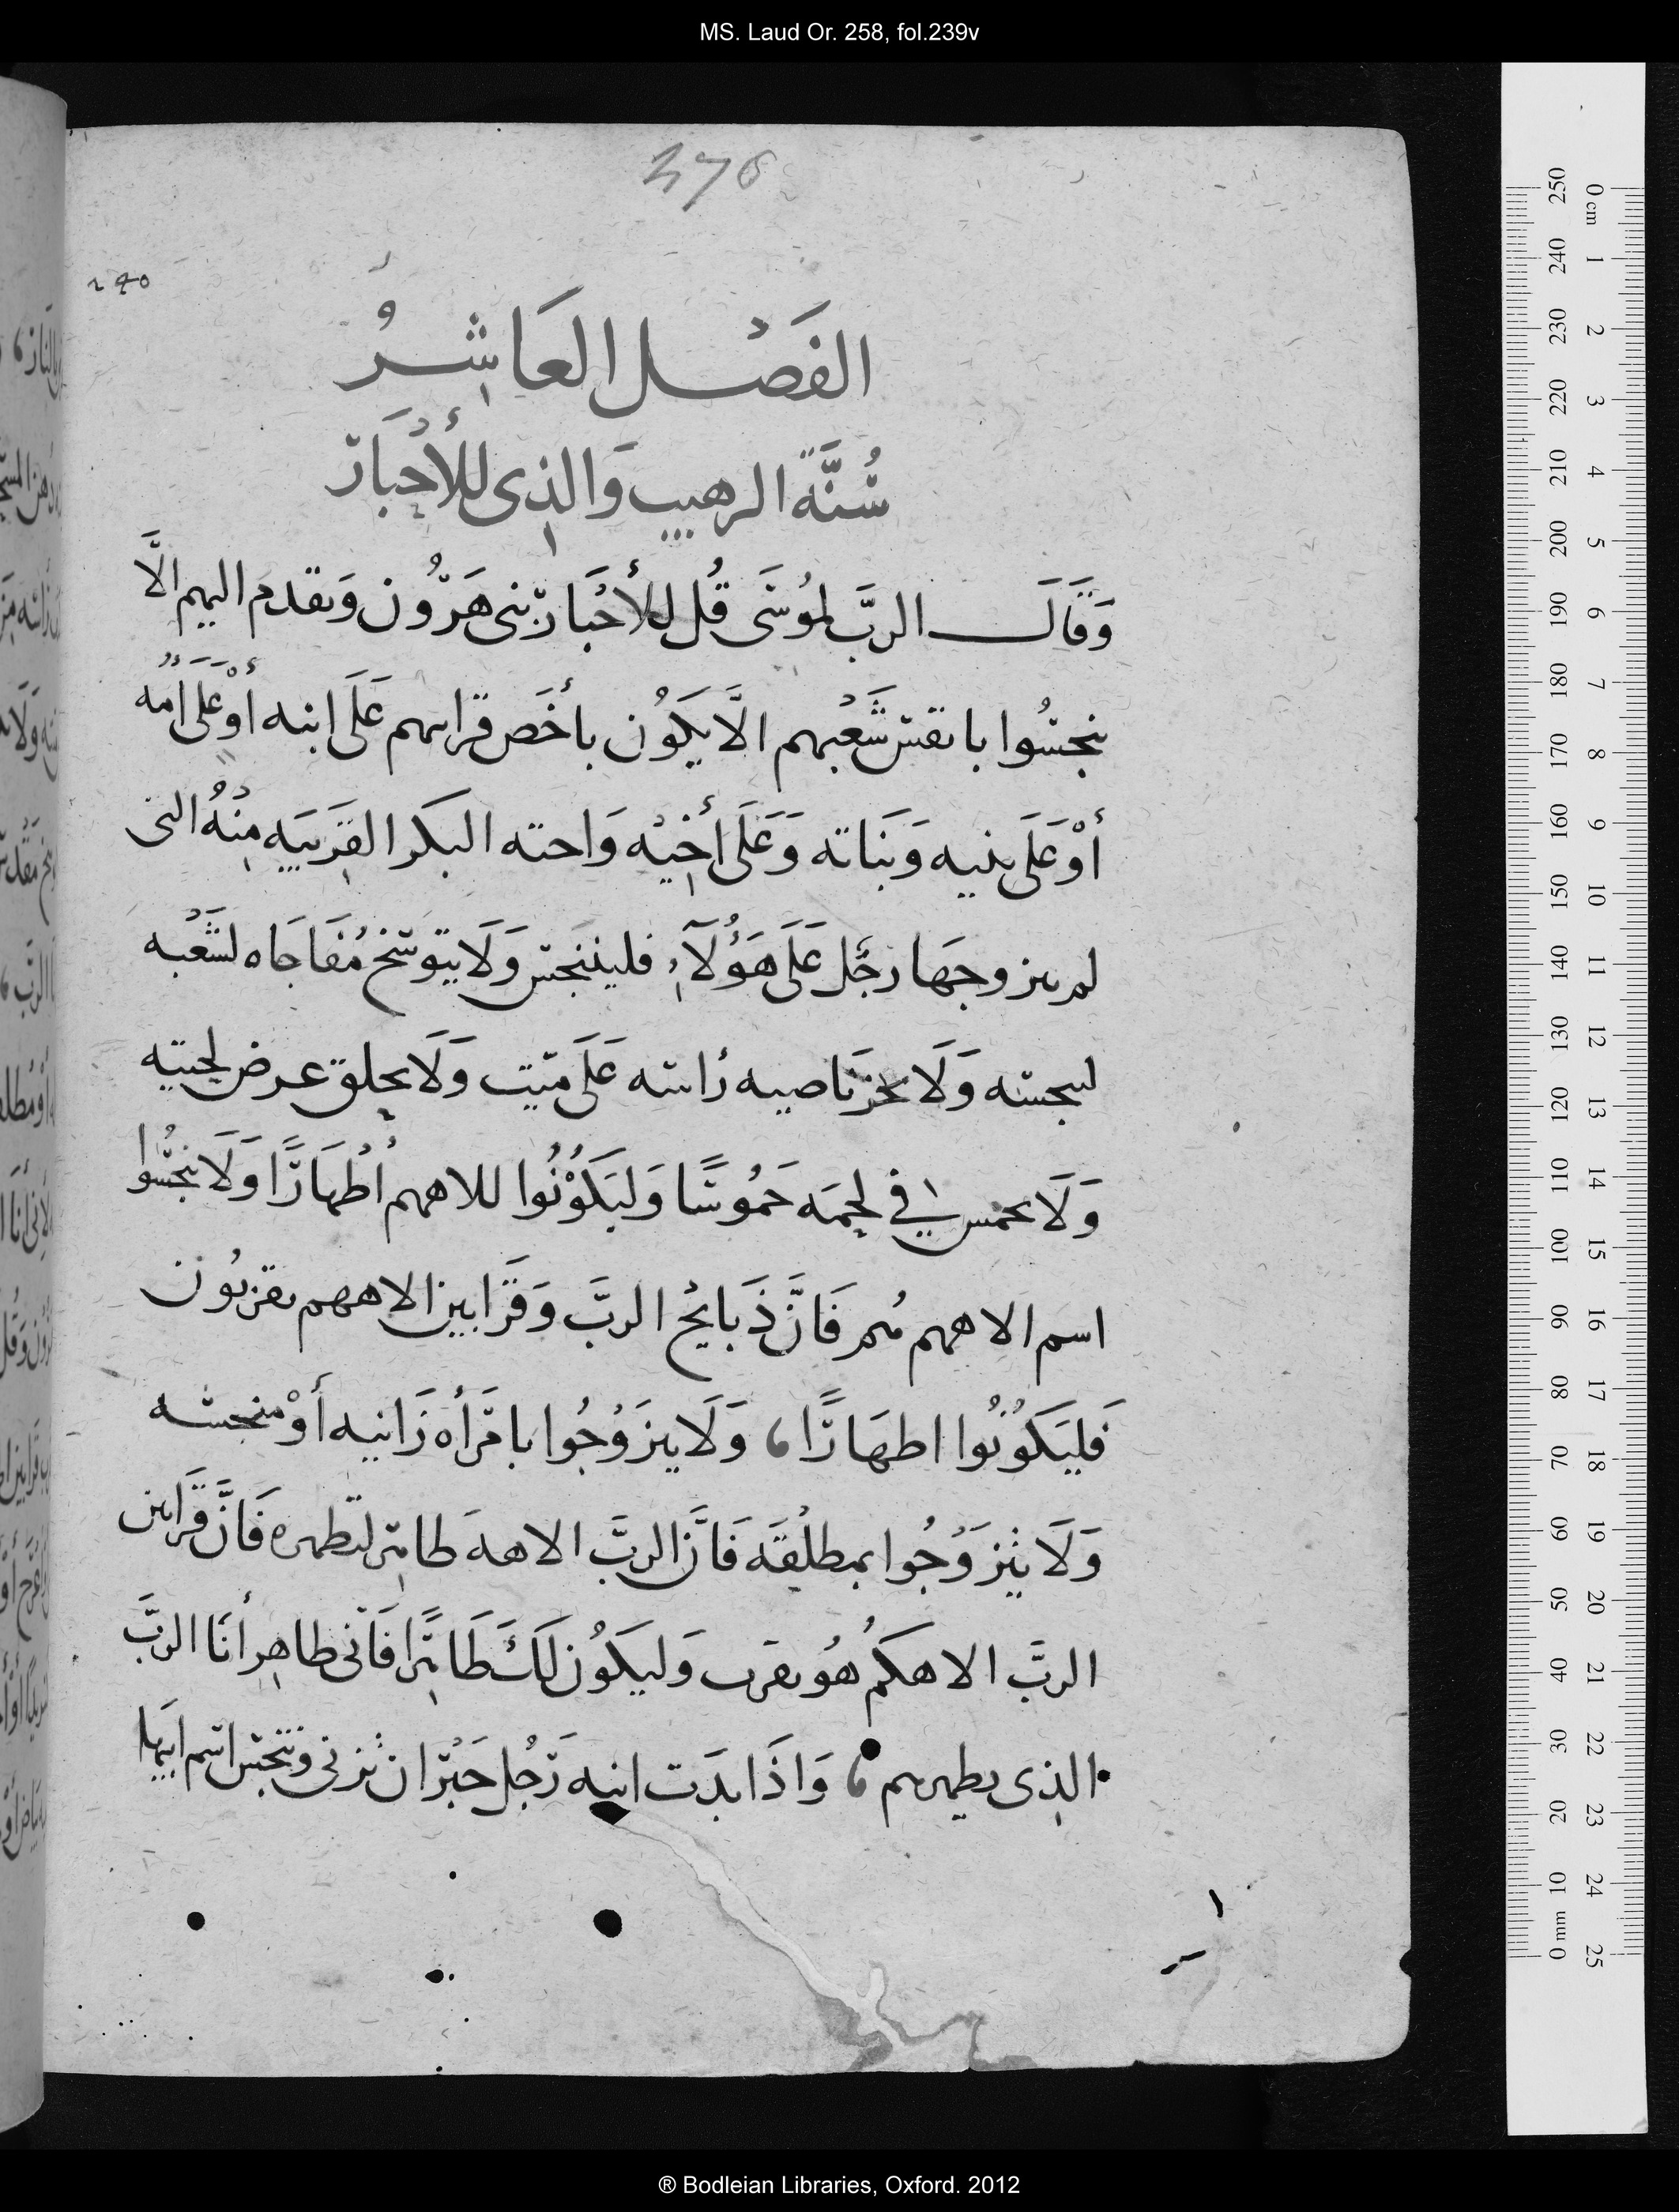 MS. Laud Or. 258, fol.239v
276
240
الفَصْل العَاشِرُ
سُنَّة الرهيب وَالذِى للأحْبَار
وَقَالَ الربَّ لمُوسَى قُل للأحْبَار بنى هَرُون وَتقدم اليهم الَّا
ينجسُوا بانفس شَعْبهم الَّا يَكُون بأخَص قرابهم عَلَى ابنه أوْ عَلَى امّه
أوْ عَلَى بنيه وَبَنَاته وَعَلَى أخِيْه وَاخته البكر القَرِيبَه مِنْهُ التى
لم يتزوجَهَا رجُل عَلَى هَؤُلَآءِ فليتنجس وَلَا يتوسَّخ مُفَاجَاه لشَعْبه
لنجسه وَلَا يجز نَاصيه رَاسه عَلَى مَيّت وَلَا يحلق عرض لحيته
وَلَا يخمس فِي لحمَه خمُوشًا وَليَكُوْنُوا للاههم أُطْهَارًا وَلَا ينجسُّوا
اسم الاههم فَانَّ ذَبايح الربَّ وَقَرَابين الاههم يقربُون
فَليَكُوْنُوا اطهَارًا، وَلَا يتزَوُجُوا بامرَأه زَانيه أوْ منجسه
وَلَا يتزَوُجُوا بمطلْقَه فَانَّ الربَّ الاهه طاهِر لتطهره فَانَّ قَرَابين
الربَّ الاهكُم هُو يقرب وَليكُون لَكَ طَاهِرًا فَانّى طاهِر أنَا الربَّ
الذِى يطهرهم، وَاذَا بدَت ابنه رَجُل حَبْر ان تزنِي وتنجس اسم ابيها
0 cm 1 2 3 4 5 6 7 8 9 10 11 12 13 14 15 16 17 18 19 20 21 22 23 24 25
250 240 230 220 210 200 190 180 170 160 150 140 130 120 110 100 90 80 70 60 50 40 30 20 10 0 mm
® Bodleian Libraries, Oxford. 2012